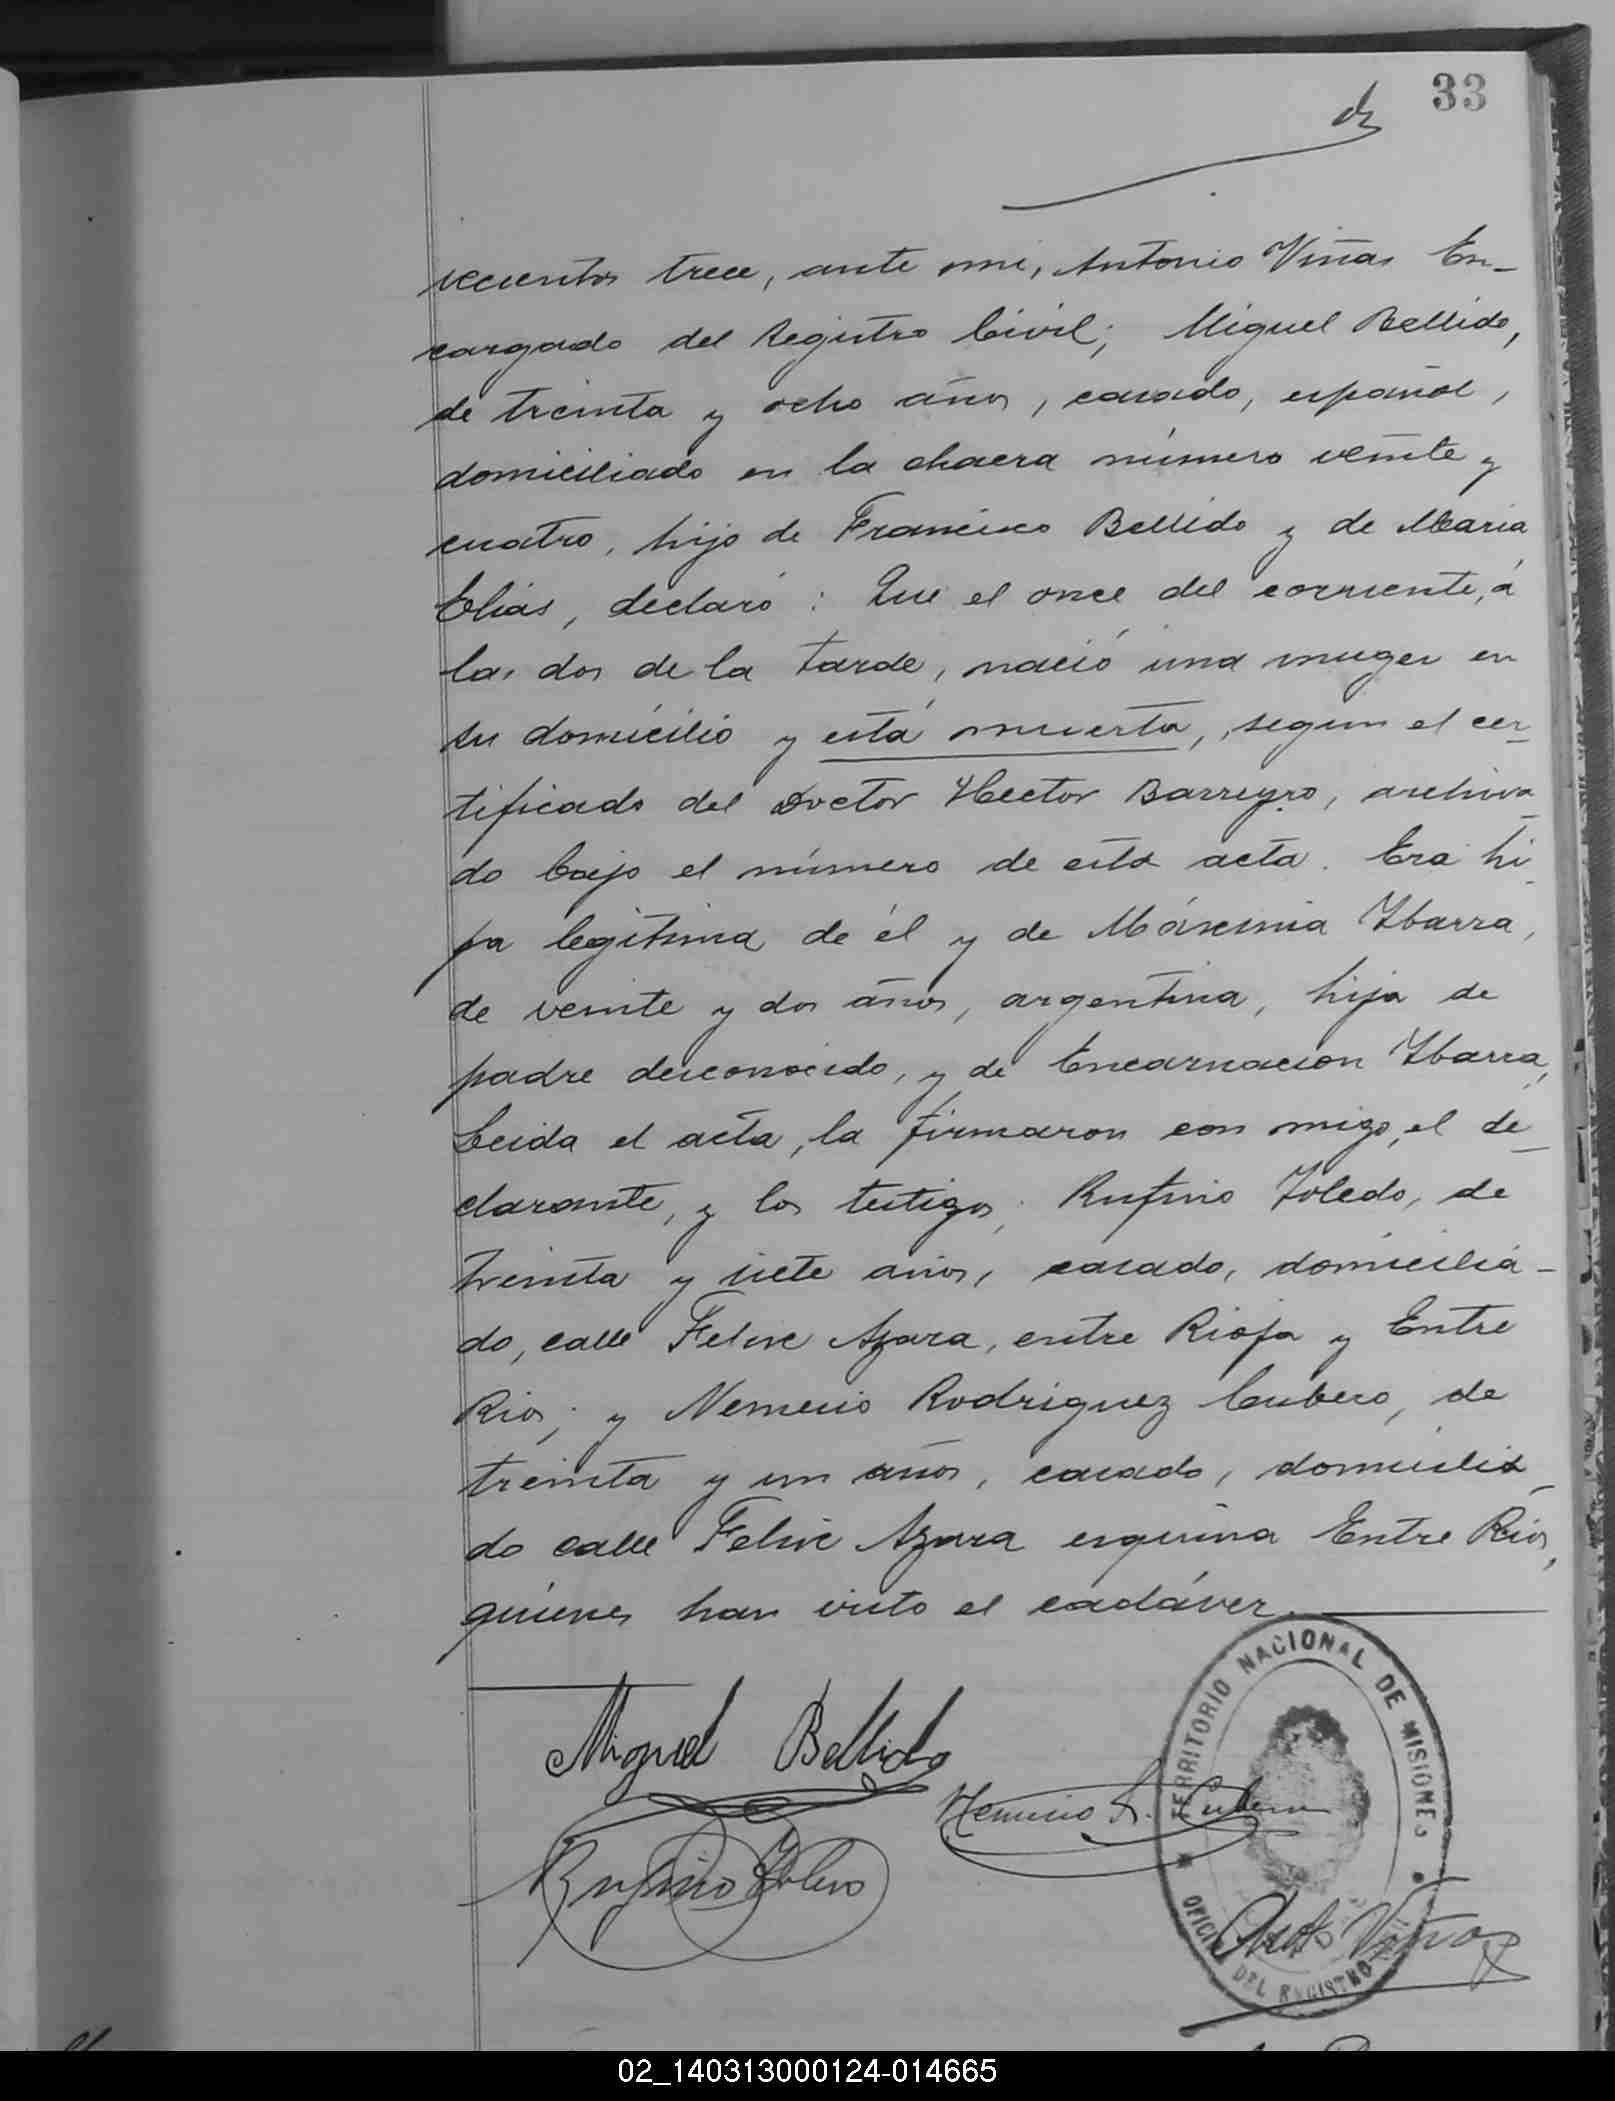 33
vecientos trece, ante mi, Antonio Viñas En-
cargado del Registro Civil; Miguel Bellido,
de treinta y ocho años, casado, español,
domiciliado en la chacra número veinte y
cuatro, hijo de Francisco Bellido y de Maria
Elias, declaró: Que el once del corriente, á
las dos de la tarde, nació una muger en
su domicilio y está muerta, segun el cer-
tificado del Doctor Hector Barreyro, archiva-
do bajo el número de esta acta. Era hi-
ja legitima de él y de Máxima Ybarra,
de veinte y dos años, argentina, hija de
padre desconocido, y de Encarnacion Ybarra,
Leida el acta, la firmaron con migo, el de-
clarante, y los testigos; Rufino Toledo, de
treinta y siete años, casado, domicilia-
do, calle Felix Azara, entre Rioja y Entre
Rios; y Nemesio Rodriguez Cubero, de
treinta y un años, casado, domicilia-
do calle Felix Azara esquina Entre Rios,
quienes han visto el cadáver.
Miguel Bellido
Nemesio R. Cubero
Rufino Toledo
Ant Viñas
TERRITORIO NACIONAL DE MISIONES
OFICINA DEL REGISTRO CIVIL
02_140313000124-014665